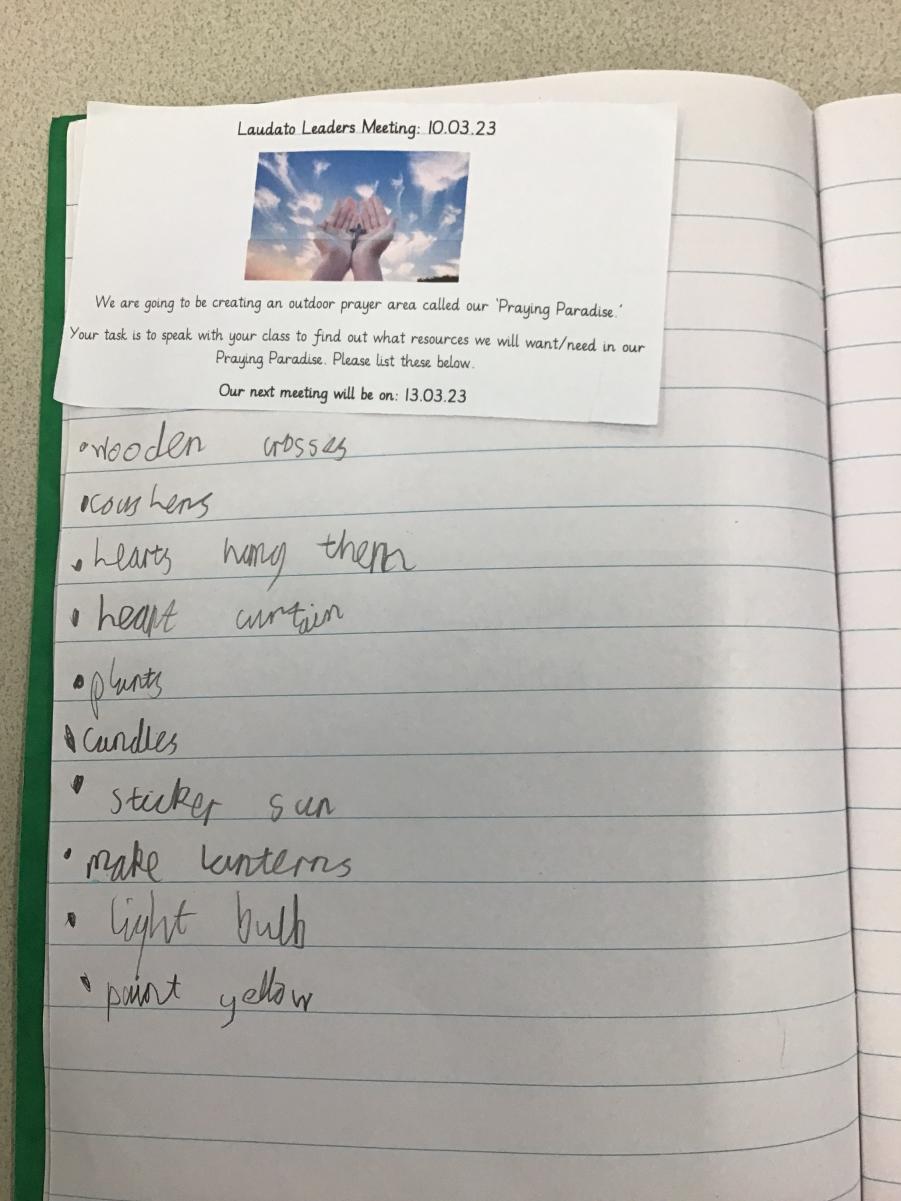 Laudato Leaders Meeting: 10.03.23
We are going to be creating an outdoor prayer area called our 'Praying Paradise.'
Your task is to speak with your class to find out what resources we will want/need in our
Praying Paradise. Please list these below.
Our next meeting will be on: 13.03.23
• wooden crosses
• coushens
• hearts hang them
• heart curtain
• plants
• candles
• sticker sun
• make lanterns
• light bulb
• paint yellow